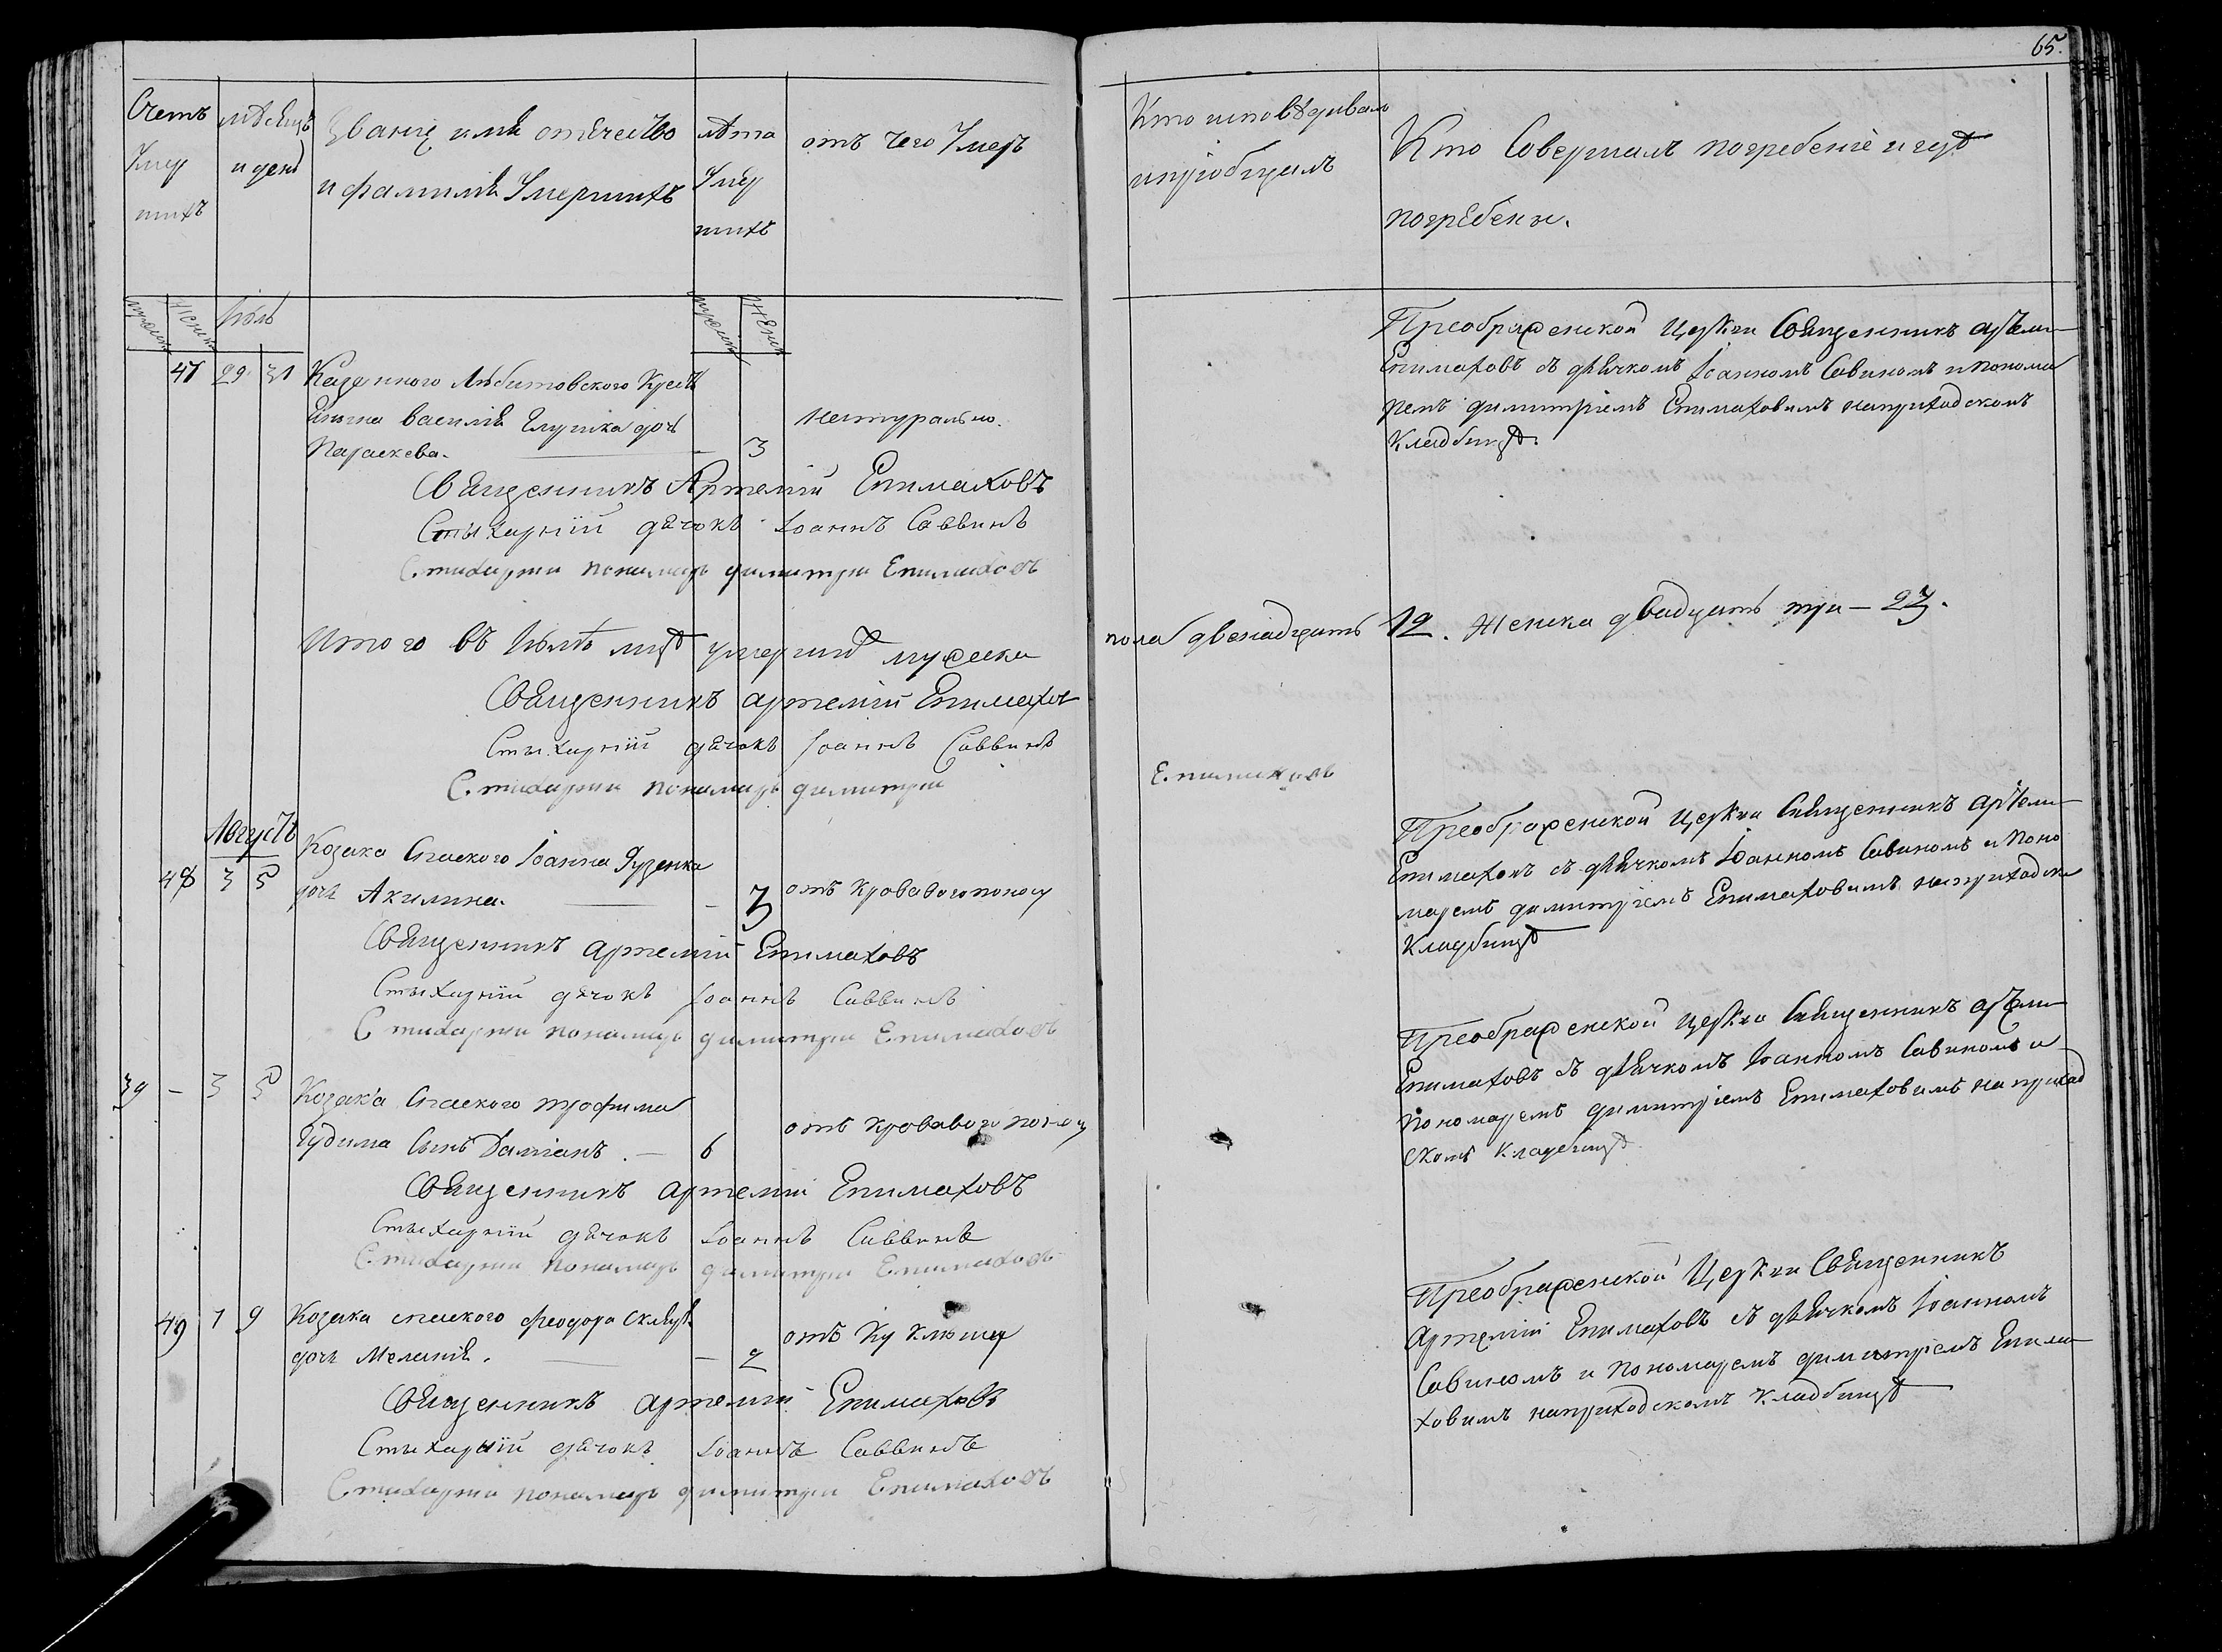 65.
Счетъ
Умер
шихъ
мѣсяцъ
и день
Званіе имя отечество
и фамилія Умершихъ
лѣта
Умер
шихъ
отъ чего Умеръ
Кто исповѣдивалъ
и пріобщалъ
Кто Совершалъ погребеніе и гдѣ
погребены.
мужеска
женска
Іюль
мужеска
женска
47 29 31 Казеннаго Любитовского Крестя
нина Василія дочь
Параскева. — 3
Натурально.
Преображенской Церкви Священникъ Артеми
Епимаховъ съ дьячкомъ Іоанномъ Савиномъ и понома
ремъ Димитріемъ Епимаховимъ на приходскомъ
Кладбищѣ.
Священникъ Артемій Епимаховъ
Стыхарній дячокъ Іоаннъ Саввинъ
Стихарни понамаръ Димитри Епимаховъ
Итого въ Іюлѣ мцѣ умершихъ мужеска пола двенадцать 12. Женска двадцать три — 23.
Священникъ Артемій Епимахов
Стыхарній дячокъ Іоаннъ Саввинъ
Стихарни понамаръ Димитри Епимаховъ
Августъ
48 3 5 Козака Спаского Іоанна Гузенка
дочь Акилина. — 3
отъ Кроваваго поносу
Преображенской Церкви Священникъ Артеми
Епимаховъ съ дьячкомъ Іоанномъ Савиномъ и Поно
маремъ Димитріемъ Епимаховимъ на приходском
Кладбищѣ
Священникъ Артемій Епимаховъ
Стыхарній дячокъ Іоаннъ Саввинъ
Стихарни понамаръ Димитри Епимаховъ
39 — 3 5 Козака Спаского Трофима
Гудима Сынъ Даміанъ. — 6
отъ Кроваваго поносу
Преображенской Церкви Священникъ Артеми
Епимаховъ съ дьячкомъ Іоанномъ Савиномъ и
Пономаремъ Димитріемъ Епимаховимъ на приход
скомъ Кладбищѣ
Священникъ Артемій Епимаховъ
Стыхарній дячокъ Іоаннъ Саввинъ
Стихарни понамаръ Димитри Епимаховъ
49 7 9 Козака Спаского Феодора
дочь Меланія. — 2
отъ Куклюшу
Преображенской Церкви Священникъ
Артемій Епимаховъ съ дьячкомъ Іоанномъ
Савиномъ и Пономаремъ Димитріемъ Епима
ховимъ на приходскомъ Кладбищѣ
Священникъ Артемій Епимаховъ
Стыхарній дячокъ Іоаннъ Саввинъ
Стихарни понамаръ Димитри Епимаховъ